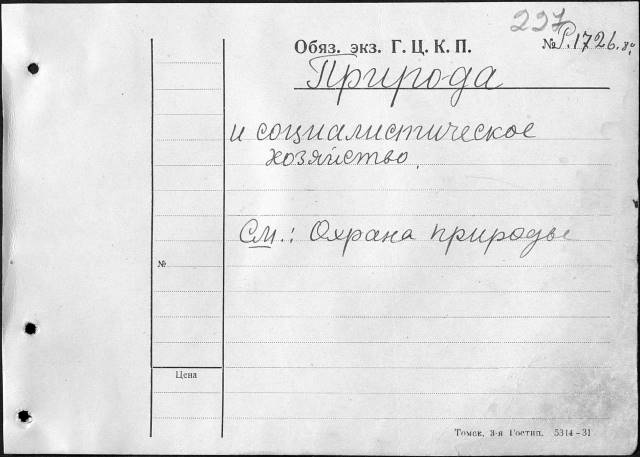 227
Обяз. экз. Г. Ц. К. П.
№ Р.1726.
Природа
и социалистическое
хозяйство.
См.: Охрана природы
№
Цена
Томск, 3-я Гостип. 5314-31